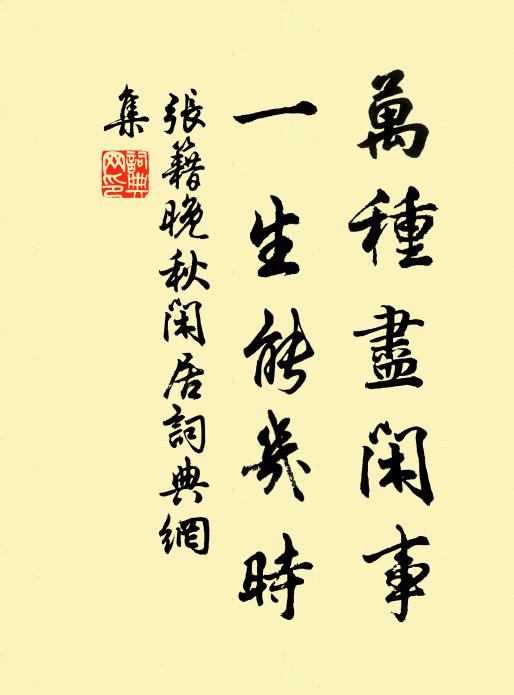 萬種盡閑事
一生能幾時
張籍晚秋閑居詞典網
集
詞典
网印